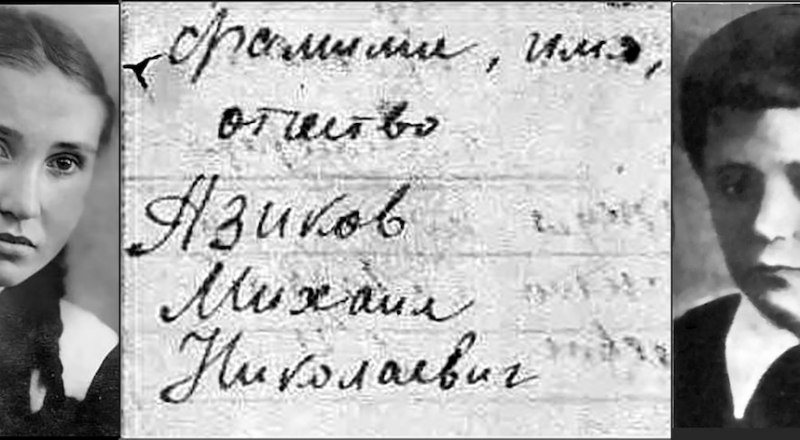 Фамилия, имя,
отчество
Азиков
Михаил
Николаевич